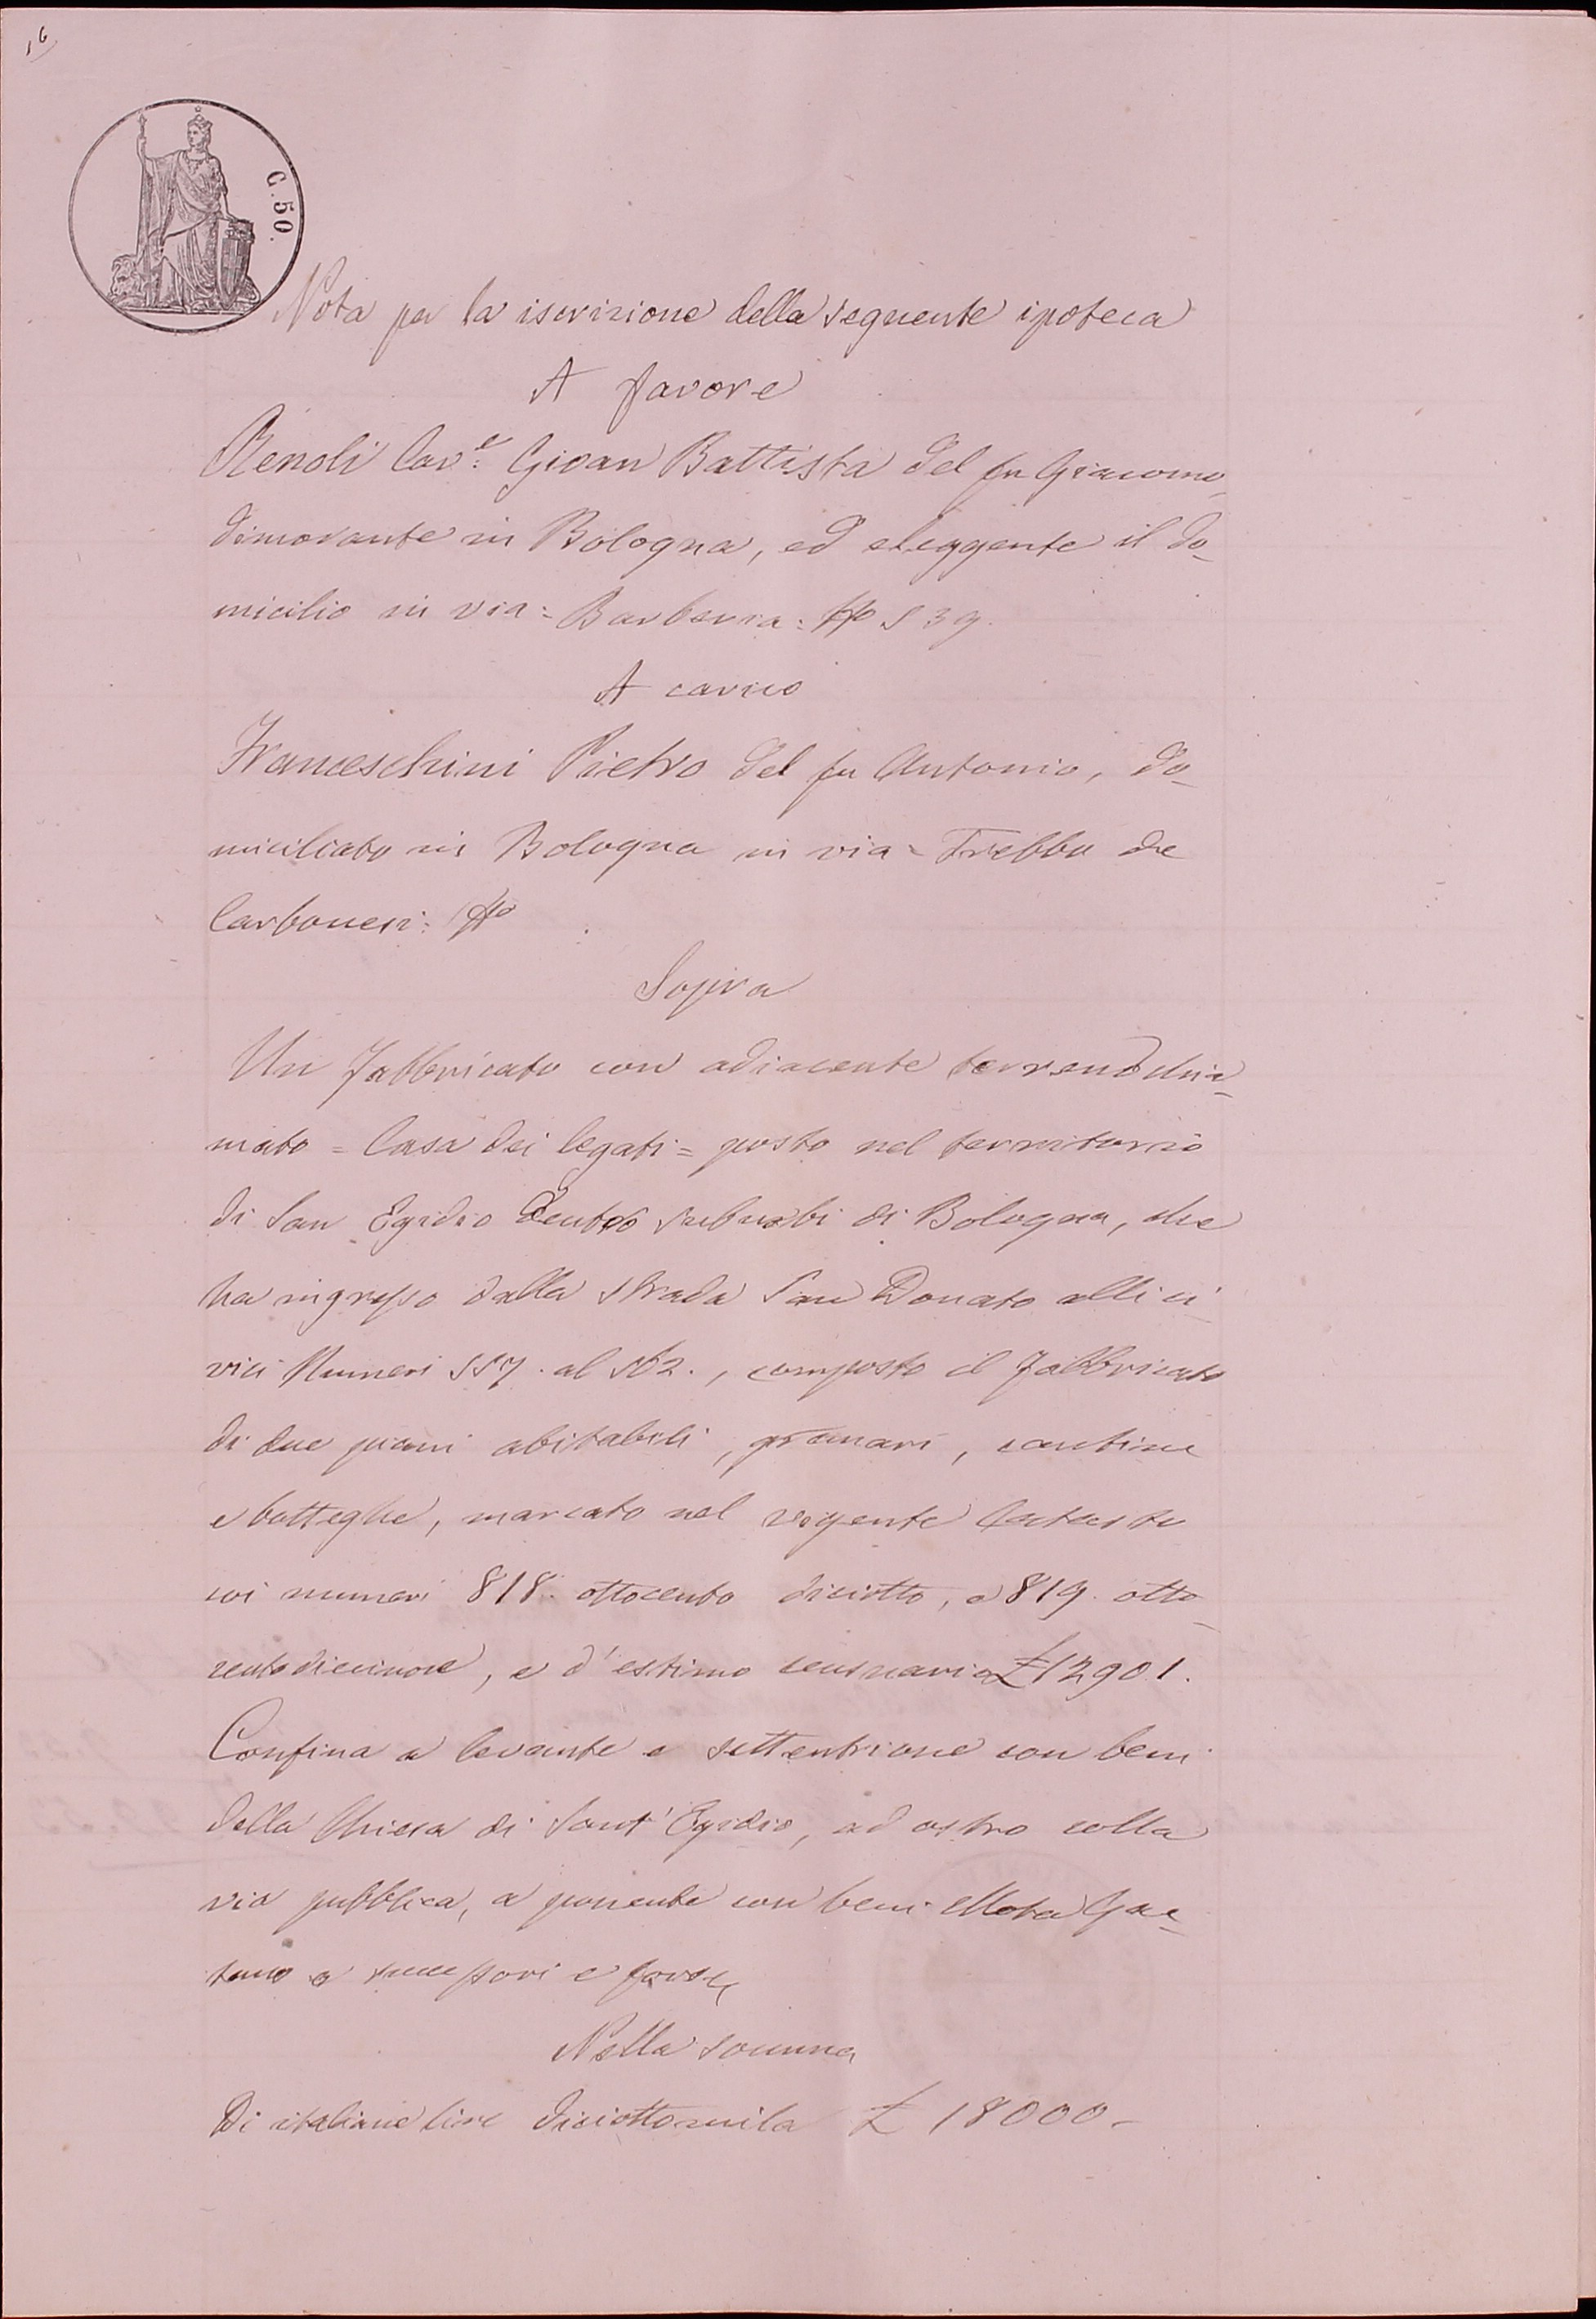 16
C. 50.
Nota per la iscrizione della seguente ipoteca
A favore
Renoli Cav.e Gioan Battista del fu Giacomo
dimorante in Bologna, ed eleggente il do-
micilio in via = Barberia = No 539.
A carico
Franceschini Pietro del fu Antonio, do-
miciliato in Bologna in via = Trebbo de
Carbonesi = No .
Sopra
Un Fabbricato con adiacente terreno chia-
mato = Casa dei legati = posto nel territorio
di San Egidio dentro suburbi di Bologna, che
ha ingresso dalla strada San Donato alli ci-
vici Numeri 557. al 562., composto il Fabbricato
di due piani abitabili, granari, cantine
e botteghe, marcato nel vigente Catasto
coi numeri 818. ottocento diciotto, e 819. otto-
centodiecinove, e d'estimo censuario £ 12901.
Confina a levante e settentrione con beni
della Chiesa di Sant'Egidio, ad ostro colla
via pubblica, a ponente con beni Mota Gae-
tano o successori e forse
Nella somma
Di italiane lire diciottomila £ 18000-